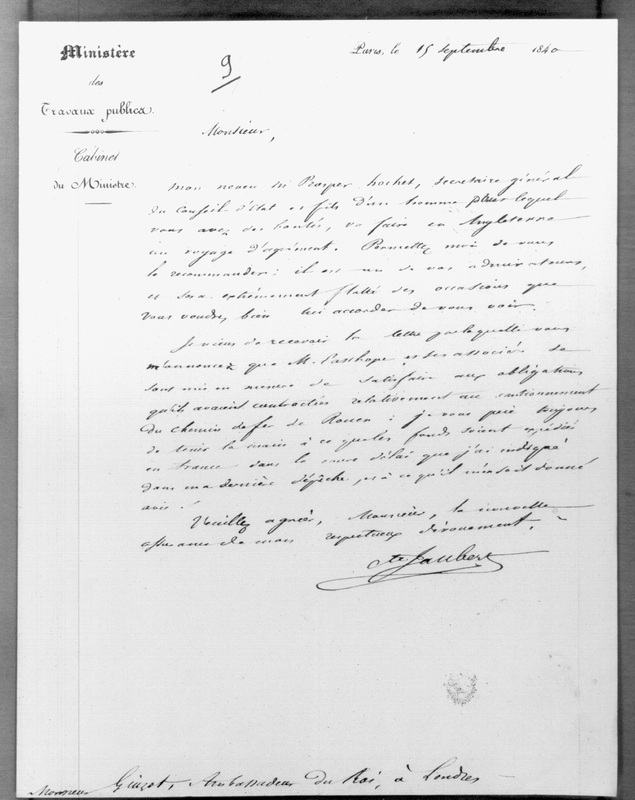 Ministère
des
Travaux publics.
Cabinet
du Ministre.
Paris, le 15 septembre 1840
9
Monsieur,
mon neveu Mr Prosper hochet, secrétaire général
du Conseil d'état et fils d'un homme pour lequel
vous avez des bontés, va faire en Angleterre
un voyage d'agrément. Permettez moi de vous
le recommander : il est un de vos admirateurs,
et sera extrêmement flatté des occasions que
vous voudrez bien lui accorder de vous voir.
Je viens de recevoir la lettre par laquelle vous
m'annoncez que M. et ses associés se
sont mis en mesure de satisfaire aux obligations
qu'ils avaient contractées relativement au cautionnement
du chemin de fer de Rouen : je vous prie toujours
de tenir la main à ce que les fonds soient expédiés
en france dans le même délai que j'ai indiqué
dans ma dernière dépêche, et à ce qu'il m'en soit donné
avis.
Veuillez agréer, Monsieur, la nouvelle
assurance de mon respectueux dévouement.
Cte Jaubert
Monsieur Guizot, Ambassadeur du Roi, à Londres